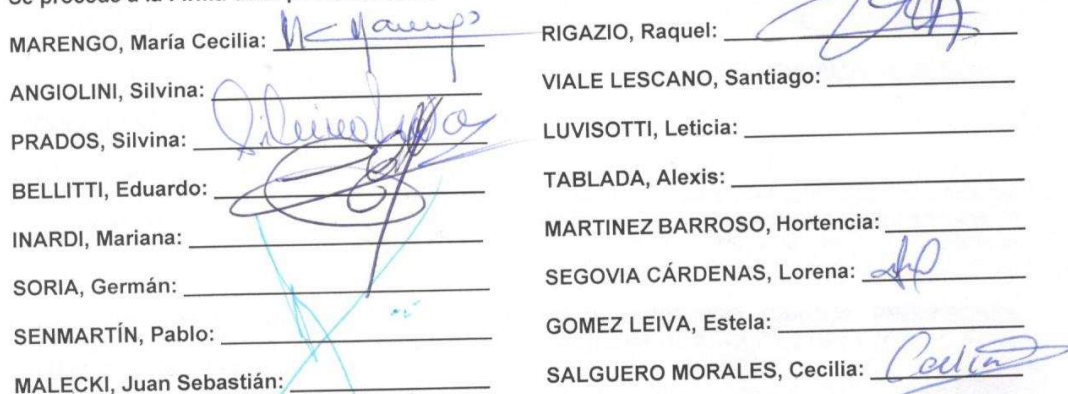 MARENGO, María Cecilia: Mc Marengo
ANGIOLINI, Silvina:
PRADOS, Silvina: Silvina Prados
BELLITTI, Eduardo:
INARDI, Mariana:
SORIA, Germán:
SENMARTÍN, Pablo:
MALECKI, Juan Sebastián:
RIGAZIO, Raquel:
VIALE LESCANO, Santiago:
LUVISOTTI, Leticia:
TABLADA, Alexis:
MARTINEZ BARROSO, Hortencia:
SEGOVIA CÁRDENAS, Lorena:
GOMEZ LEIVA, Estela:
SALGUERO MORALES, Cecilia: